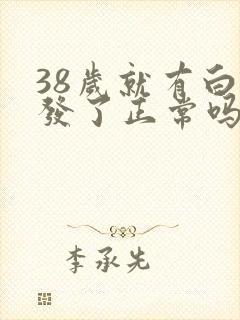 38歲就有白
發了正常吗
李承先